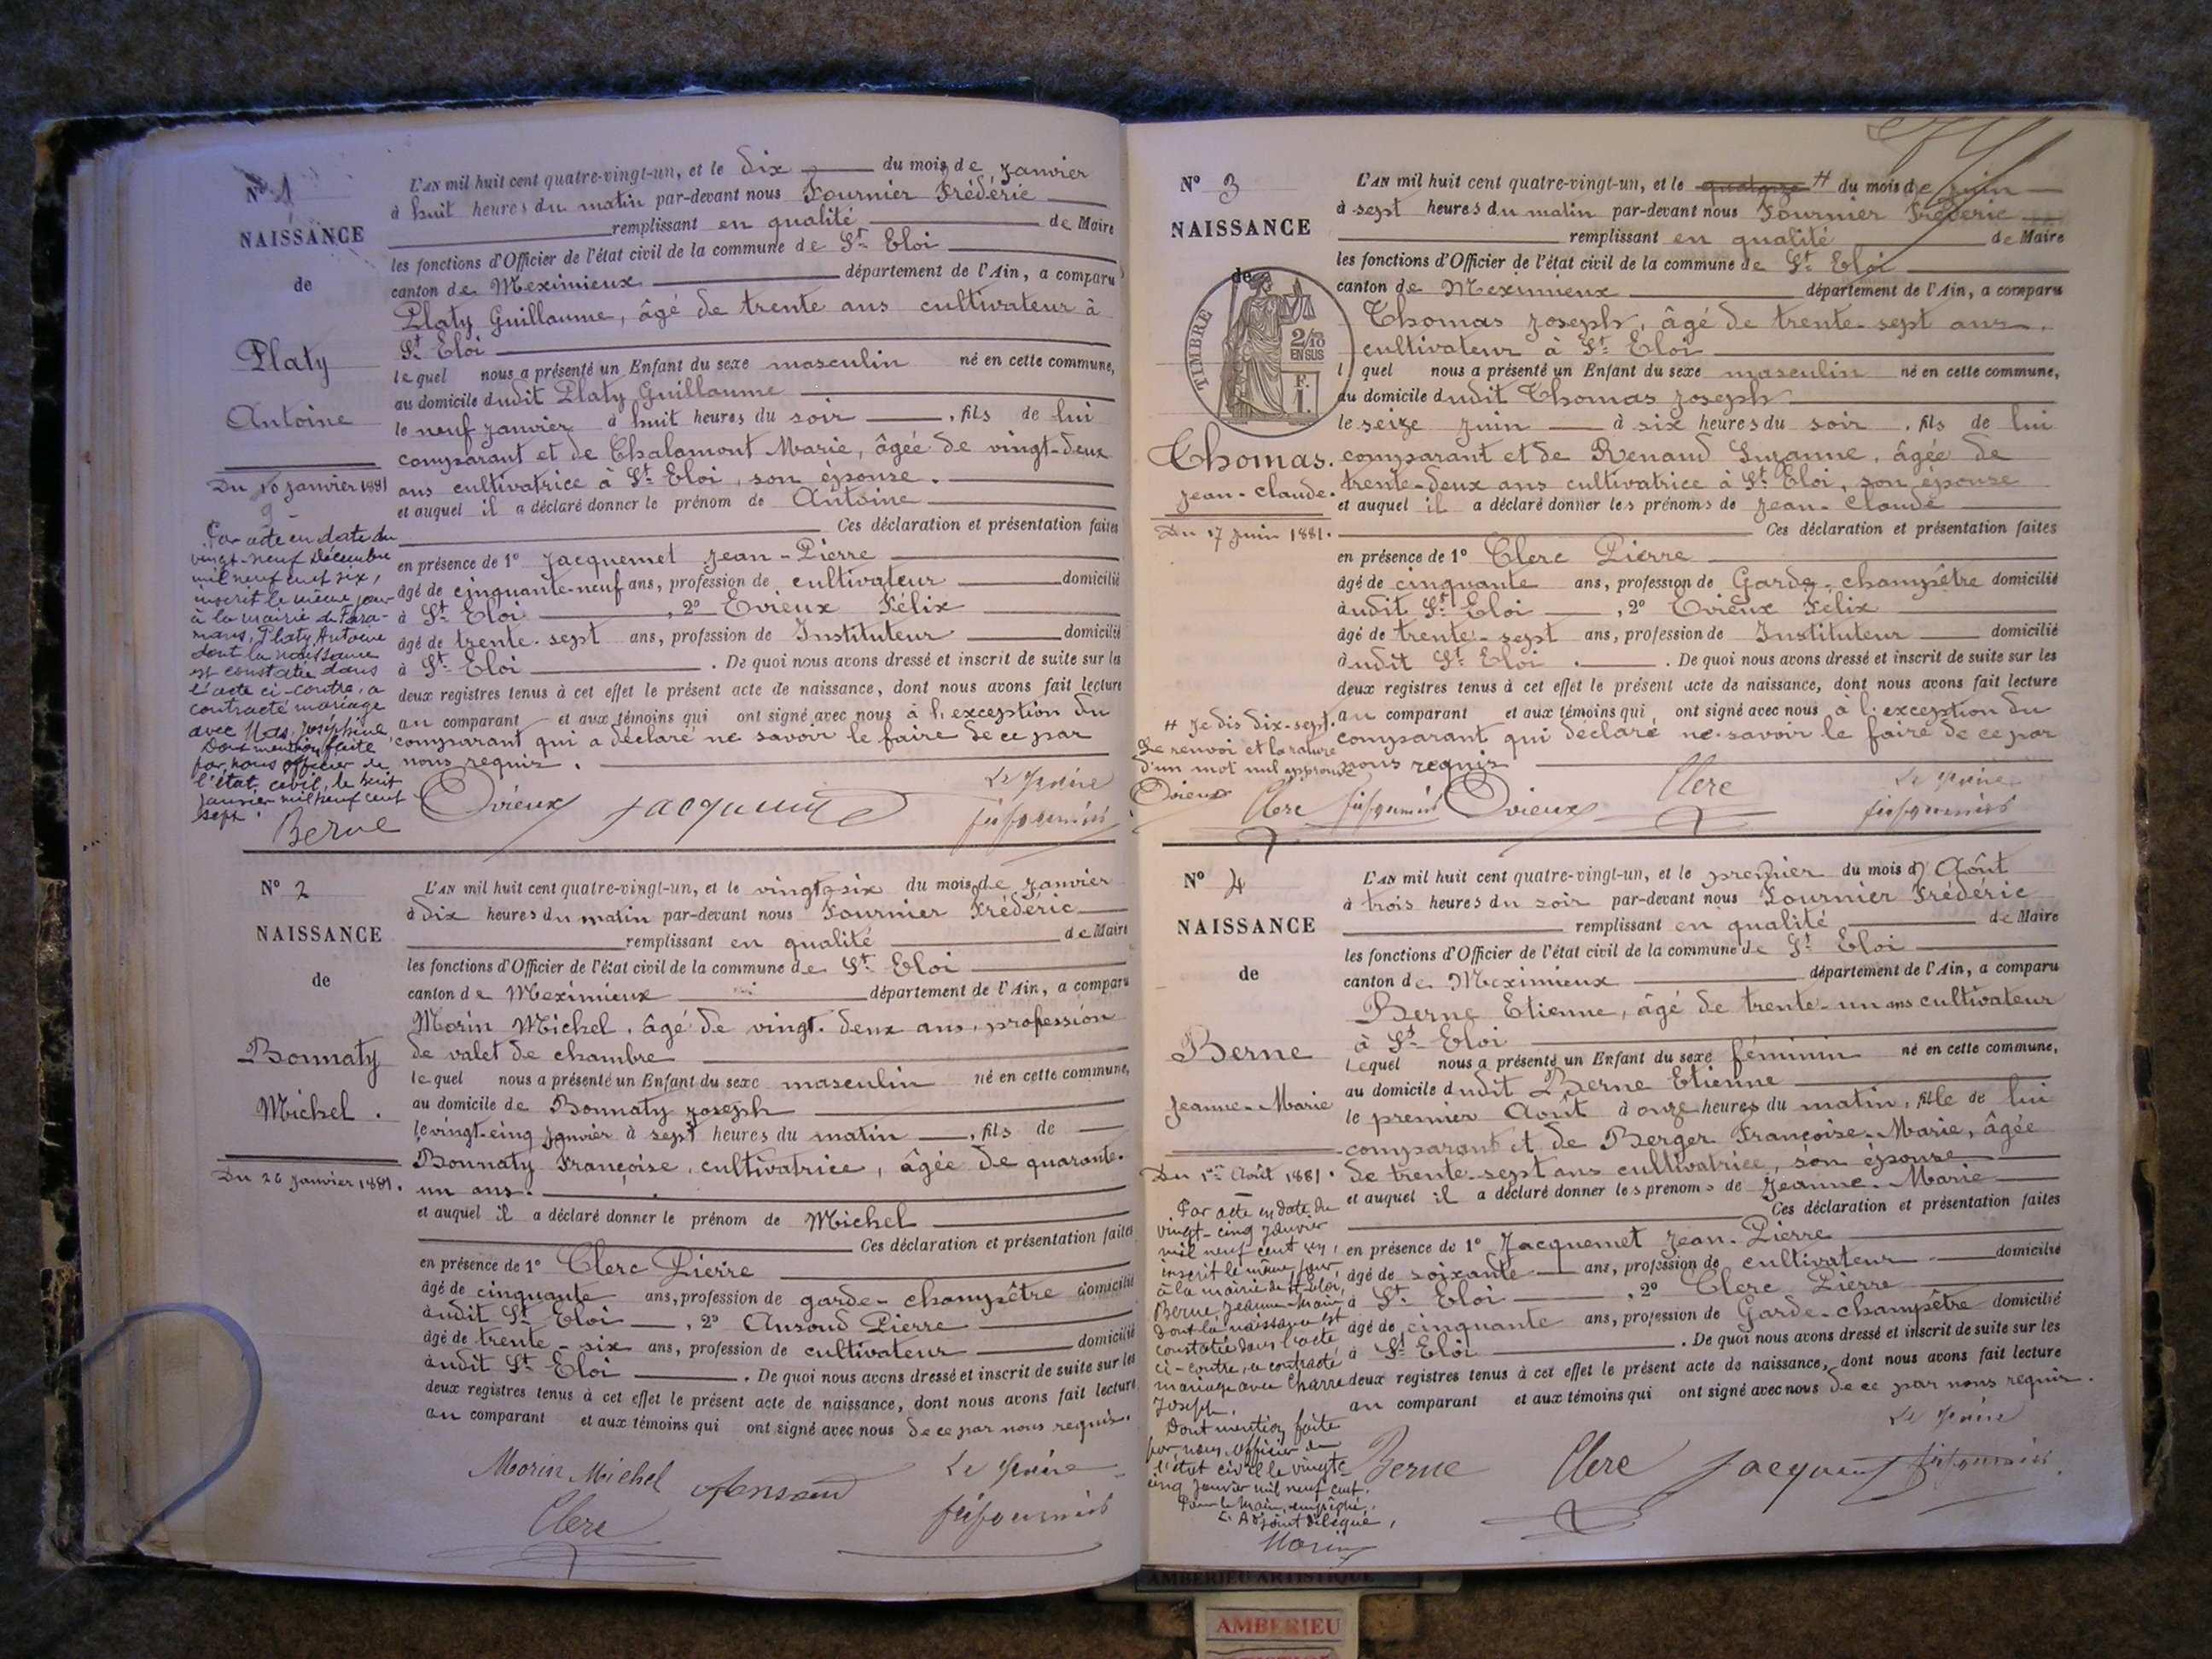 N° 1
NAISSANCE
de
Platy
Antoine
Du 10 janvier 1881
Par acte en date du
vingt-neuf Décembre
mil neuf cent six,
inscrit le même jour
à la mairie de Fara-
mans, Platy Antoine
dont la naissance
est constatée dans
l'acte ci-contre, a
contracté mariage
avec Joséphine
Dont mention faite
par nous officier de
l'état civil, le huit
janvier mil neuf cent
sept.
Berne
L'AN mil huit cent quatre-vingt-un, et le dix du mois de janvier
à huit heures du matin par-devant nous Fournier Frédéric
remplissant en qualité de Maire
les fonctions d'Officier de l'état civil de la commune de St Eloi
canton de Meximieux département de l'Ain, a comparu
Platy Guillaume, âgé de trente ans cultivateur à
St Eloi
lequel nous a présenté un Enfant du sexe masculin né en cette commune,
au domicile dudit Platy Guillaume
le neuf janvier à huit heures du soir, fils de lui
comparant et de Chalamont Marie, âgée de vingt-deux
ans cultivatrice à St Eloi, son épouse.
et auquel il a déclaré donner le prénom de Antoine
Ces déclaration et présentation faites
en présence de 1° Jacquemet Jean-Pierre
âgé de cinquante-neuf ans, profession de cultivateur domicilié
à St Eloi, 2° Evieux Félix
âgé de trente-sept ans, profession de Instituteur domicilié
à St Eloi. De quoi nous avons dressé et inscrit de suite sur les
deux registres tenus à cet effet le présent acte de naissance, dont nous avons fait lecture
au comparant et aux témoins qui ont signé avec nous à l'exception du
comparant qui a déclaré ne savoir le faire de ce par
nous requis.
Le Maire
N° 2
NAISSANCE
de
Bonnaty
Michel.
Du 26 janvier 1881.
L'AN mil huit cent quatre-vingt-un, et le vingt-six du mois de janvier
à dix heures du matin par-devant nous Fournier Frédéric
remplissant en qualité de Maire
les fonctions d'Officier de l'état civil de la commune de St Eloi
canton de Meximieux département de l'Ain, a comparu
Morin Michel, âgé de vingt-deux ans, profession
de valet de chambre
lequel nous a présenté un Enfant du sexe masculin né en cette commune,
au domicile de Bonnaty Joseph
le vingt-cinq janvier à sept heures du matin, fils de
Bonnaty Françoise, cultivatrice, âgée de quarante-
un ans.
et auquel il a déclaré donner le prénom de Michel
Ces déclaration et présentation faites
en présence de 1° Clerc Pierre
âgé de cinquante ans, profession de garde-champêtre domicilié
audit St Eloi, 2° Ansoud Pierre
âgé de trente-six ans, profession de cultivateur domicilié
audit St Eloi. De quoi nous avons dressé et inscrit de suite sur les
deux registres tenus à cet effet le présent acte de naissance, dont nous avons fait lecture
au comparant et aux témoins qui ont signé avec nous de ce par nous requis.
Morin Michel Ansoud Le Maire
Clerc
N° 3
NAISSANCE
de
TIMBRE
2/10
EN SUS
F.
1.
Thomas.
Jean-Claude.
Du 17 juin 1881.
# Je dis dix-sept.
Le renvoi et la rature
d'un mot nul approuvé
L'AN mil huit cent quatre-vingt-un, et le quatorze # du mois de juin
à sept heures du matin par-devant nous Fournier Frédéric
remplissant en qualité de Maire
les fonctions d'Officier de l'état civil de la commune de St Eloi
canton de Meximieux département de l'Ain, a comparu
Thomas Joseph, âgé de trente-sept ans,
cultivateur à St Eloi
l quel nous a présenté un Enfant du sexe masculin né en cette commune,
au domicile dudit Thomas Joseph
le seize juin à six heures du soir, fils de lui
comparant et de Renaud Suzanne, âgée de
trente-deux ans cultivatrice à St Eloi, son épouse
et auquel il a déclaré donner les prénoms de Jean-Claude
Ces déclaration et présentation faites
en présence de 1° Clerc Pierre
âgé de cinquante ans, profession de Garde-champêtre domicilié
audit St Eloi, 2° Evieux Félix
âgé de trente-sept ans, profession de Instituteur domicilié
audit St Eloi. De quoi nous avons dressé et inscrit de suite sur les
deux registres tenus à cet effet le présent acte de naissance, dont nous avons fait lecture
au comparant et aux témoins qui ont signé avec nous à l'exception du
comparant qui déclaré ne savoir le faire de ce par
nous requis
Clerc Clerc Le Maire
N° 4
NAISSANCE
de
Berne
Jeanne-Marie
Du 1er Août 1881.
Par acte en date du
vingt-cinq janvier
mil neuf cent
inscrit le même jour,
à la mairie de St Eloi,
Berne Jeanne-Marie
dont la naissance est
constatée dans l'acte
ci-contre, a contracté
mariage avec Charre
Joseph.
Dont mention faite
par nous officier de
l'état civil le vingt-
cinq janvier mil neuf cent.
Pour le Maire empêché,
L'Adjoint délégué,
Morin
L'AN mil huit cent quatre-vingt-un, et le premier du mois d'Août
à trois heures du soir par-devant nous Fournier Frédéric
remplissant en qualité de Maire
les fonctions d'Officier de l'état civil de la commune de St Eloi
canton de Meximieux département de l'Ain, a comparu
Berne Etienne, âgé de trente-un ans cultivateur
à St Eloi
Lequel nous a présenté un Enfant du sexe féminin né en cette commune,
au domicile dudit Berne Etienne
le premier Août à onze heures du matin, fille de lui
comparant et de Berger Françoise-Marie, âgée
de trente-sept ans cultivatrice, son épouse
et auquel il a déclaré donner les prenoms de Jeanne-Marie
Ces déclaration et présentation faites
en présence de 1° Jacquemet Jean-Pierre
âgé de soixante ans, profession de cultivateur domicilié
à St Eloi, 2° Clerc Pierre
âgé de cinquante ans, profession de Garde-champêtre domicilié
à St Eloi. De quoi nous avons dressé et inscrit de suite sur les
deux registres tenus à cet effet le présent acte de naissance, dont nous avons fait lecture
au comparant et aux témoins qui ont signé avec nous de ce par nous requis.
Le Maire
Berne Clerc
AMBERIEU ARTISTIQUE
AMBERIEU